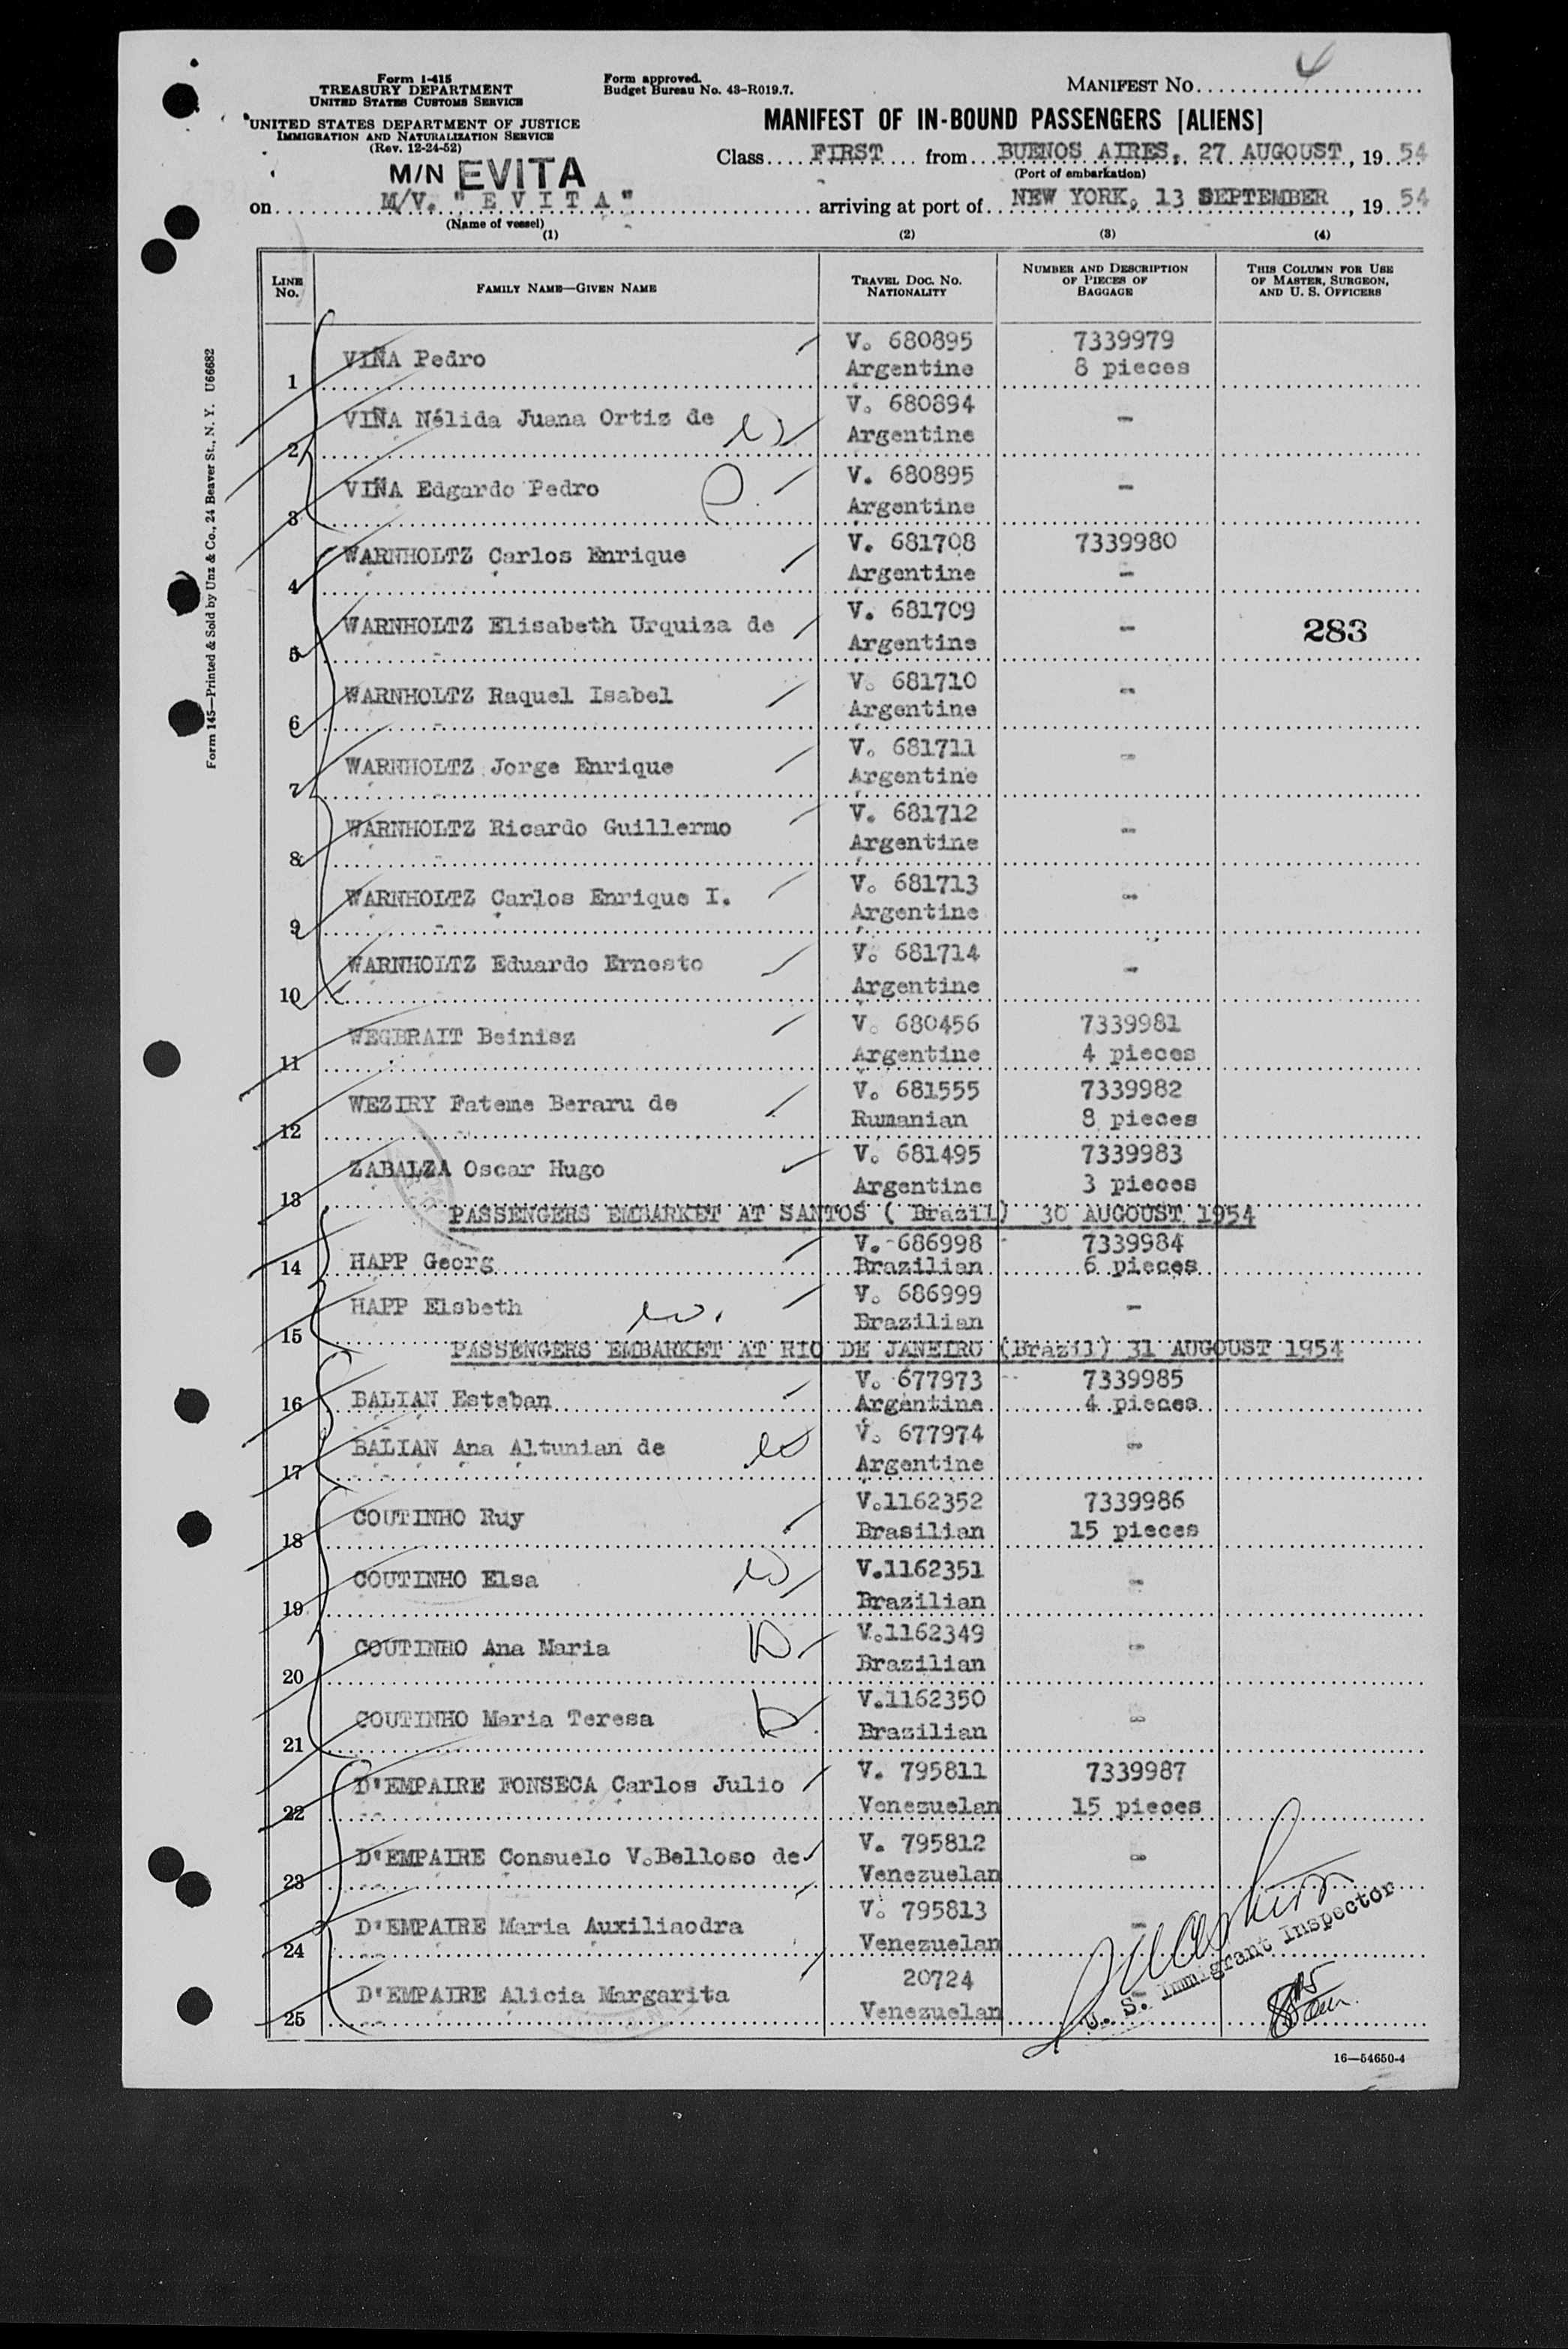 4
Form I-415
TREASURY DEPARTMENT
UNITED STATES CUSTOMS SERVICE
UNITED STATES DEPARTMENT OF JUSTICE
IMMIGRATION AND NATURALIZATION SERVICE
(Rev. 12-24-52)
Form approved.
Budget Bureau No. 43-R019.7.
MANIFEST NO.
MANIFEST OF IN-BOUND PASSENGERS [ALIENS]
Class FIRST from BUENOS AIRES, 27 AUGOUST, 19 54
(Port of embarkation)
M/N EVITA
on M/V. "E V I T A" arriving at port of NEW YORK, 13 SEPTEMBER, 19 54
(Name of vessel)
(1) (2) (3) (4)
LINE No. FAMILY NAME—GIVEN NAME TRAVEL DOC. NO. NATIONALITY NUMBER AND DESCRIPTION OF PIECES OF BAGGAGE THIS COLUMN FOR USE OF MASTER, SURGEON, AND U. S. OFFICERS
1 VIÑA Pedro V. 680895 Argentine 7339979 8 pieces
2 VIÑA Nélida Juana Ortiz de V. 680894 Argentine -
3 VIÑA Edgardo Pedro V. 680895 Argentine -
4 WARNHOLTZ Carlos Enrique V. 681708 Argentine 7339980 -
5 WARNHOLTZ Elisabeth Urquiza de V. 681709 Argentine - 283
6 WARNHOLTZ Raquel Isabel V. 681710 Argentine -
7 WARNHOLTZ Jorge Enrique V. 681711 Argentine -
8 WARNHOLTZ Ricardo Guillermo V. 681712 Argentine -
9 WARNHOLTZ Carlos Enrique I. V. 681713 Argentine -
10 WARNHOLTZ Eduardo Ernesto V. 681714 Argentine -
11 WEGBRAIT Beinisz V. 680456 Argentine 7339981 4 pieces
12 WEZIRY Fateme Beraru de V. 681555 Rumanian 7339982 8 pieces
13 ZABALZA Oscar Hugo V. 681495 Argentine 7339983 3 pieces
PASSENGERS EMBARKET AT SANTOS ( Brazil) 30 AUGOUST 1954
14 HAPP Georg V. 686998 Brazilian 7339984 6 pieces
15 HAPP Elsbeth V. 686999 Brazilian -
PASSENGERS EMBARKET AT RIO DE JANEIRO (Brazil) 31 AUGOUST 1954
16 BALIAN Esteban V. 677973 Argentina 7339985 4 pieces
17 BALIAN Ana Altunian de V. 677974 Argentine -
18 COUTINHO Ruy V.1162352 Brasilian 7339986 15 pieces
19 COUTINHO Elsa V.1162351 Brazilian -
20 COUTINHO Ana Maria V.1162349 Brazilian -
21 COUTINHO Maria Teresa V.1162350 Brazilian -
22 D'EMPAIRE FONSECA Carlos Julio V. 795811 Venezuelan 7339987 15 pieces
23 D'EMPAIRE Consuelo V.Belloso de V. 795812 Venezuelan -
24 D'EMPAIRE Maria Auxiliaodra V. 795813 Venezuelan -
25 D'EMPAIRE Alicia Margarita 20724 Venezuelan -
U. S. Immigrant Inspector
16—54650-4
Form 145—Printed & Sold by Unz & Co., 24 Beaver St., N. Y. U66682